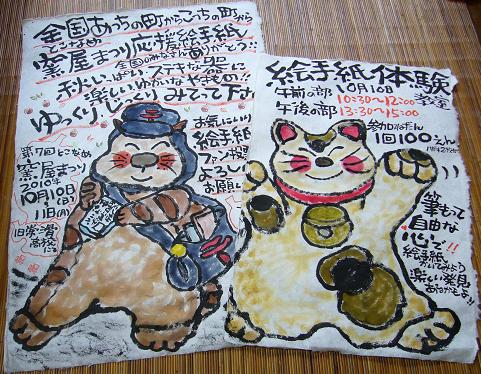 全国あちこちの町からこっちの町から
とこなめ
窯屋まつり応援絵手紙
全国のみなさんありがとう!!
秋いっぱいステキな空に
楽しいゆかいな
ゆっくりじっくりみてって下
お気にいり
絵手紙
ファン投票
よろしく
お願い
第7回とこなめ
窯屋まつり
2010年
10月10日(日)
11日(月)
高校にて
絵手紙体験
教室
10月10日
午前の部 10:30~12:00
午後の部 13:30~15:00
参加ねだん
1回100えん
筆もって
自由な
心で!!
絵手紙
かいてみよう
楽しい発見